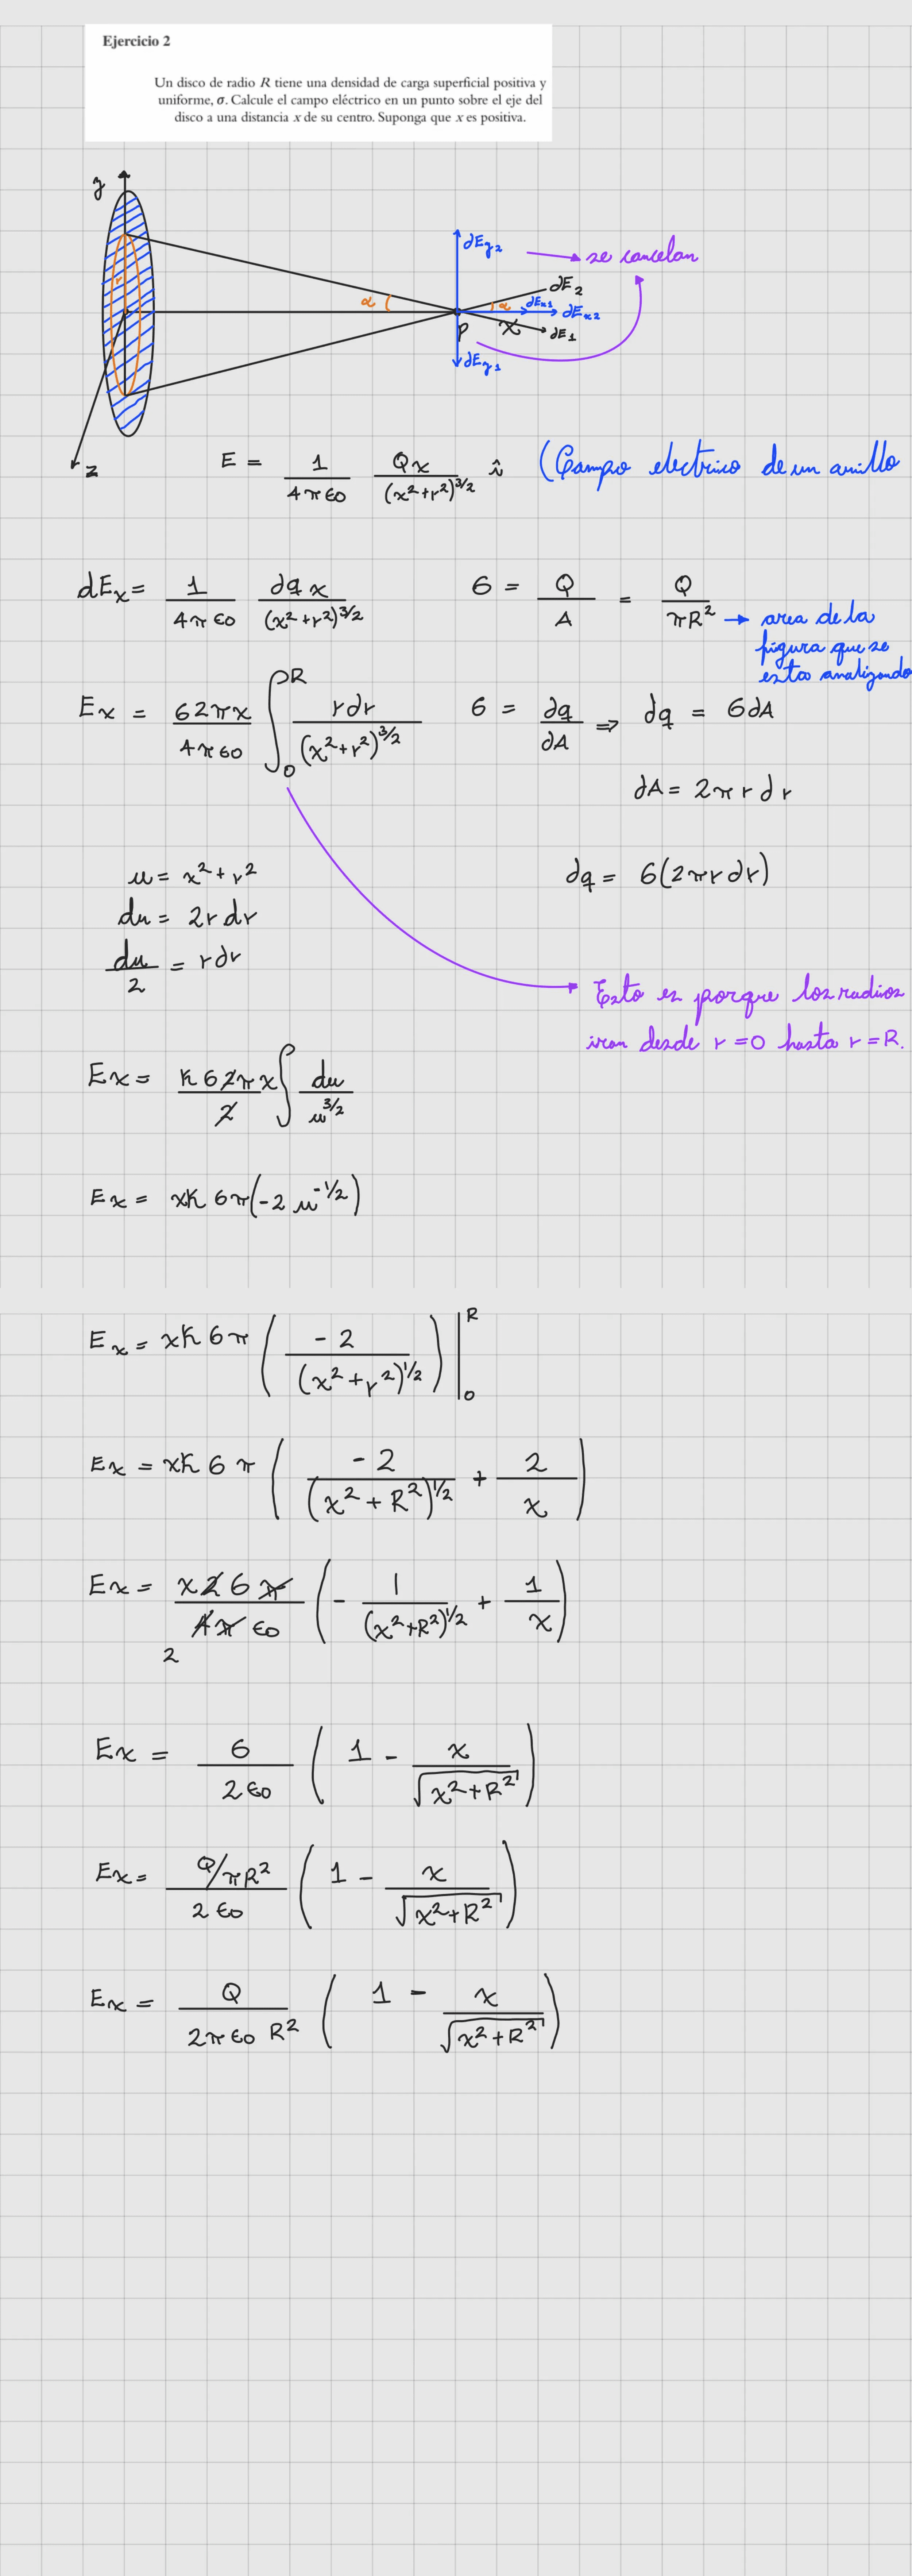 Ejercicio 2
Un disco de radio R tiene una densidad de carga superficial positiva y
uniforme, σ. Calcule el campo eléctrico en un punto sobre el eje del
disco a una distancia x de su centro. Suponga que x es positiva.
y
dEy2
se cancelan
dE2
r
α
α
dEx1
dEx2
P
x
dE1
dEy1
z
E = 1/(4π ε0) Qx/(x²+r²)^(3/2) î (Campo electrico de un anillo
dEx = 1/(4π ε0) dq x/(x²+r²)^(3/2)
σ = Q/A = Q/(πR²) → area de la
figura que se
esta analizando
Ex = σ2πx/(4π ε0) ∫₀ᴿ r dr/(x²+r²)^(3/2)
σ = dq/dA ⇒ dq = σdA
dA = 2π r dr
u = x² + r²
dq = σ(2πr dr)
du = 2r dr
du/2 = r dr
Esto es porque los radios
iran desde r = 0 hasta r = R.
Ex = k σ 2π x/2 ∫ du/u^(3/2)
Ex = xk σπ(-2 u^(-1/2))
Ex = xk σπ (-2/(x²+r²)^(1/2)) |₀ᴿ
Ex = xk σ π (-2/(x²+R²)^(1/2) + 2/x)
Ex = x2σπ/(4π ε0) (-1/(x²+R²)^(1/2) + 1/x)
2
Ex = σ/(2 ε0) (1 - x/√(x²+R²))
Ex = (Q/πR²)/(2 ε0) (1 - x/√(x²+R²))
Ex = Q/(2π ε0 R²) (1 - x/√(x²+R²))